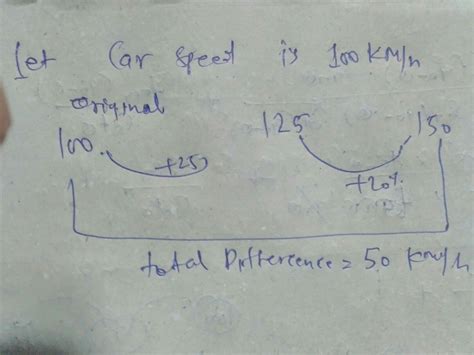 Let Car Speed is 100 KM/h
Original
100 125 150
+25
+20%
total Difference = 50 Km/h